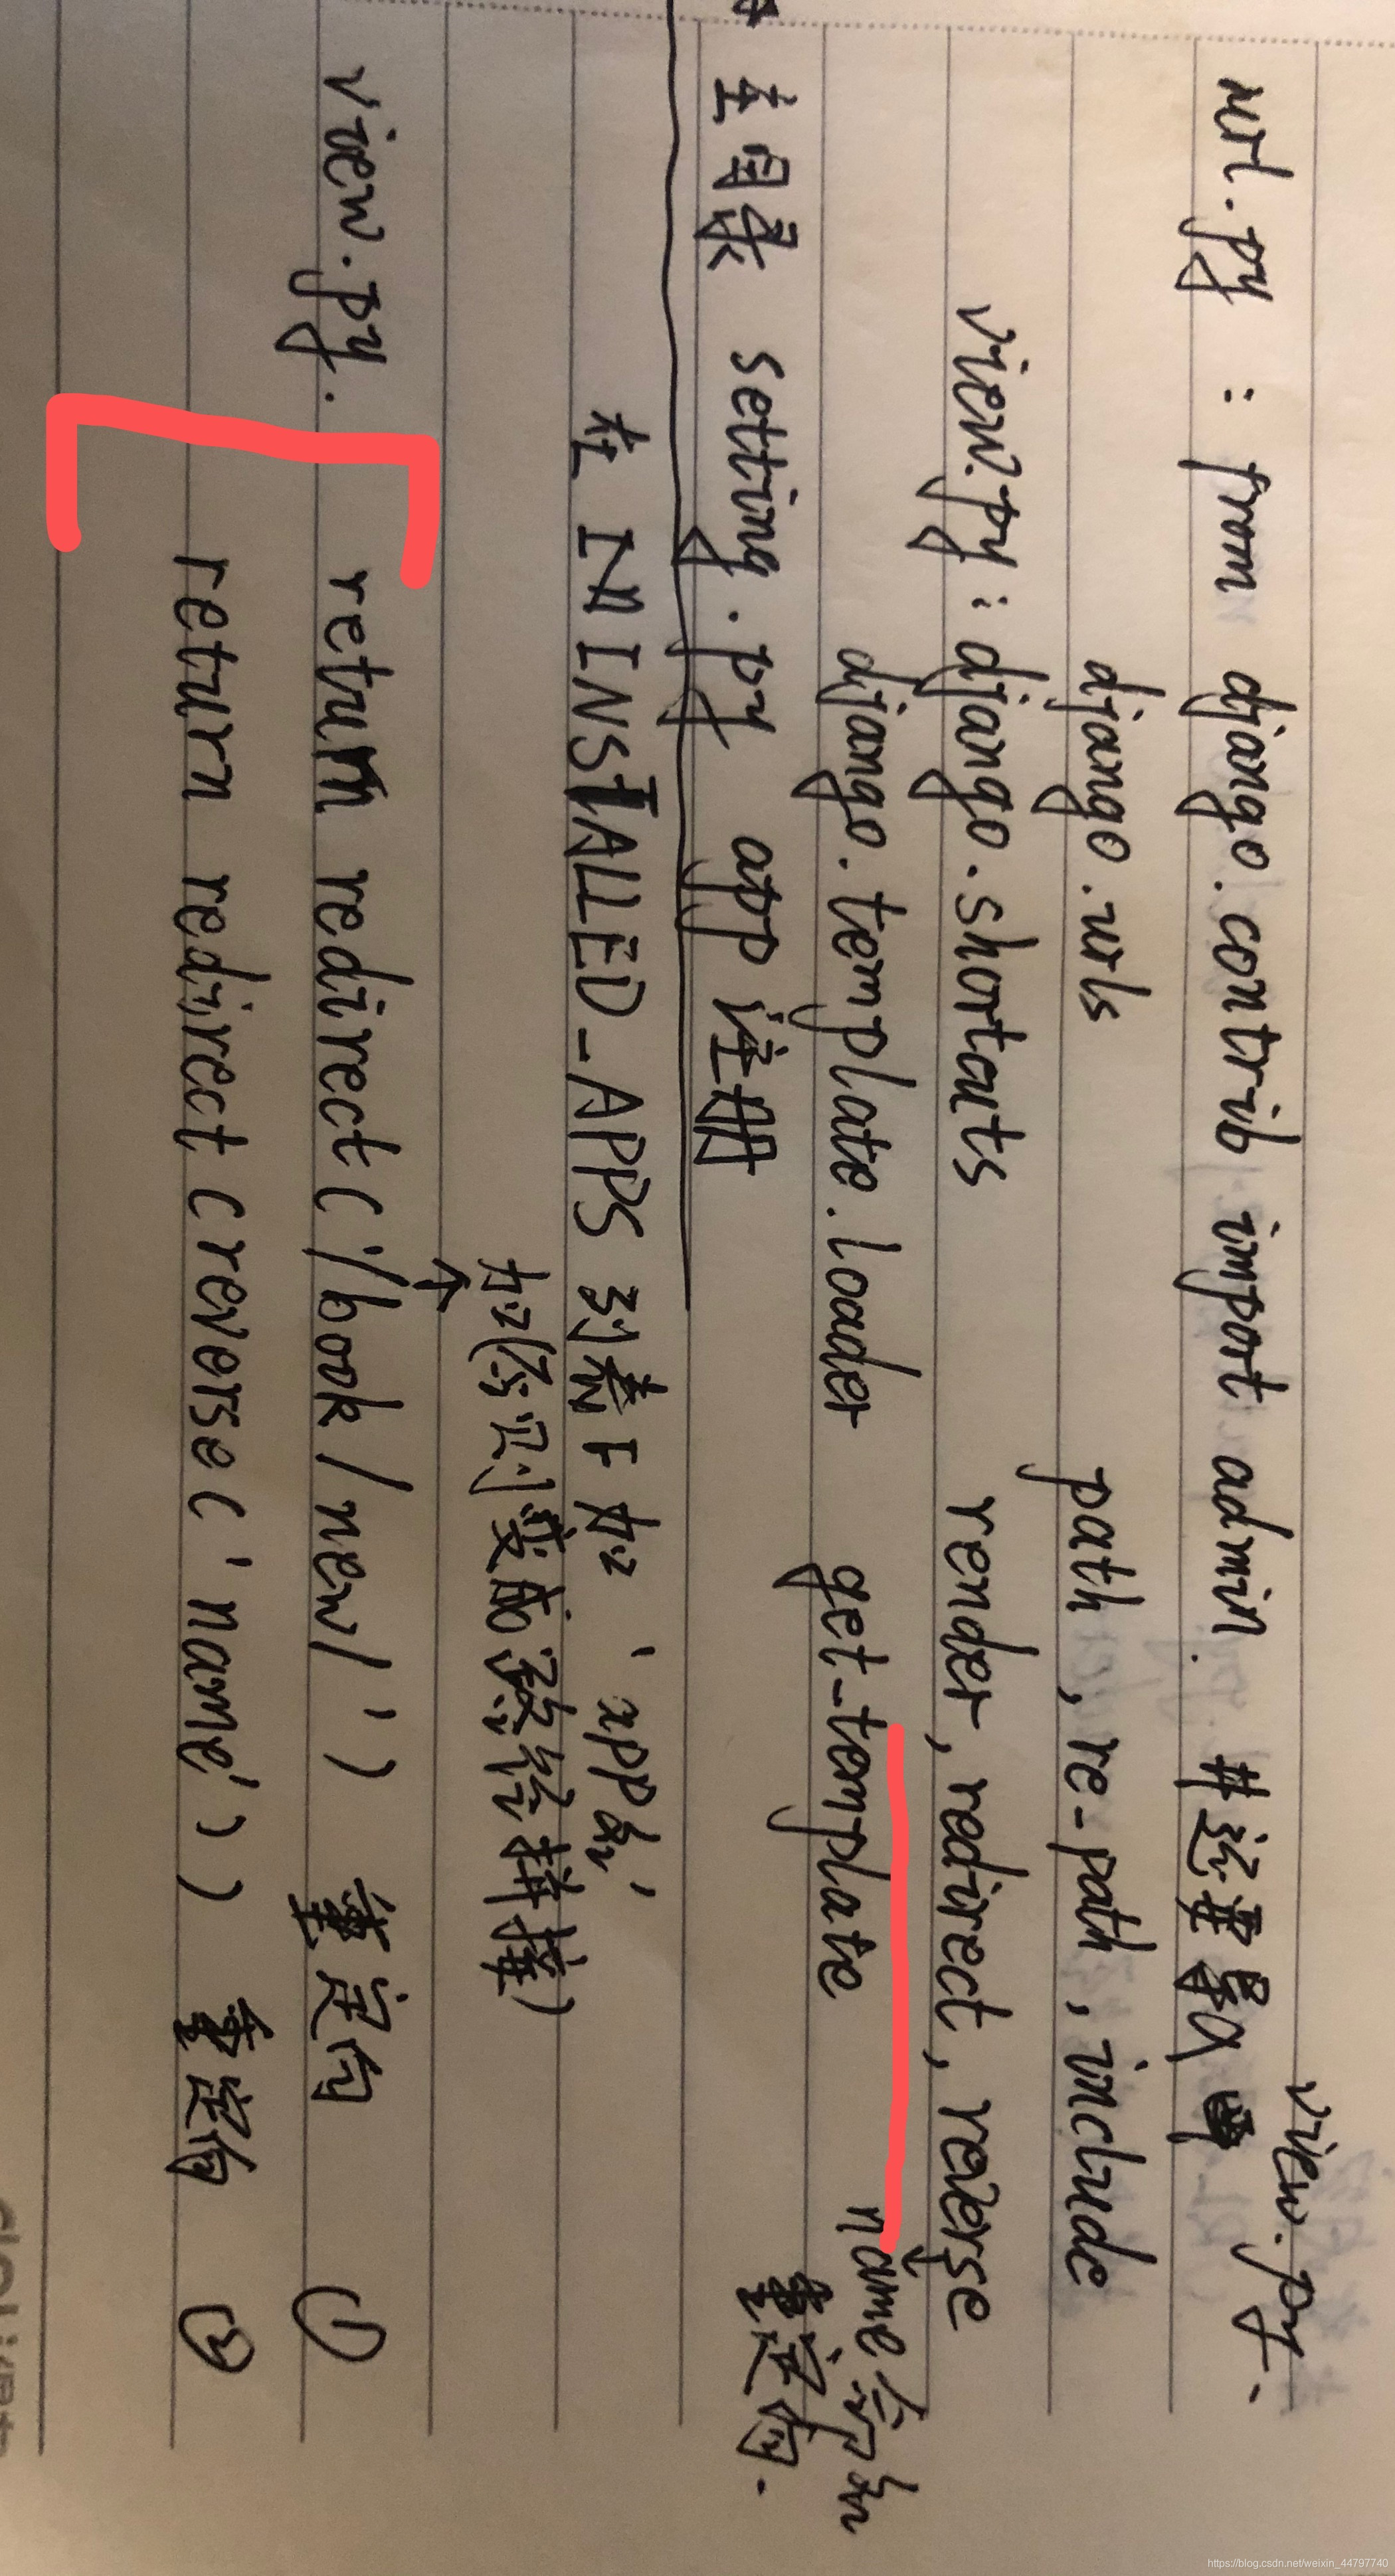 url.py : from django.contrib import admin. #还要导入 view.py.
django.urls path, re-path, include
view.py : django.shortcuts render, redirect, reverse
django.template.loader get-template name命名
重定向.
主目录 setting.py app 注册
在 INSTALLED-APPS 列表下加 'app名'
加(否则变成路径拼接)
view.py. return redirect('/book/new/') 重定向 ①
return redirect(reverse('name')) 重定向 ②
https://blog.csdn.net/weixin_44797740